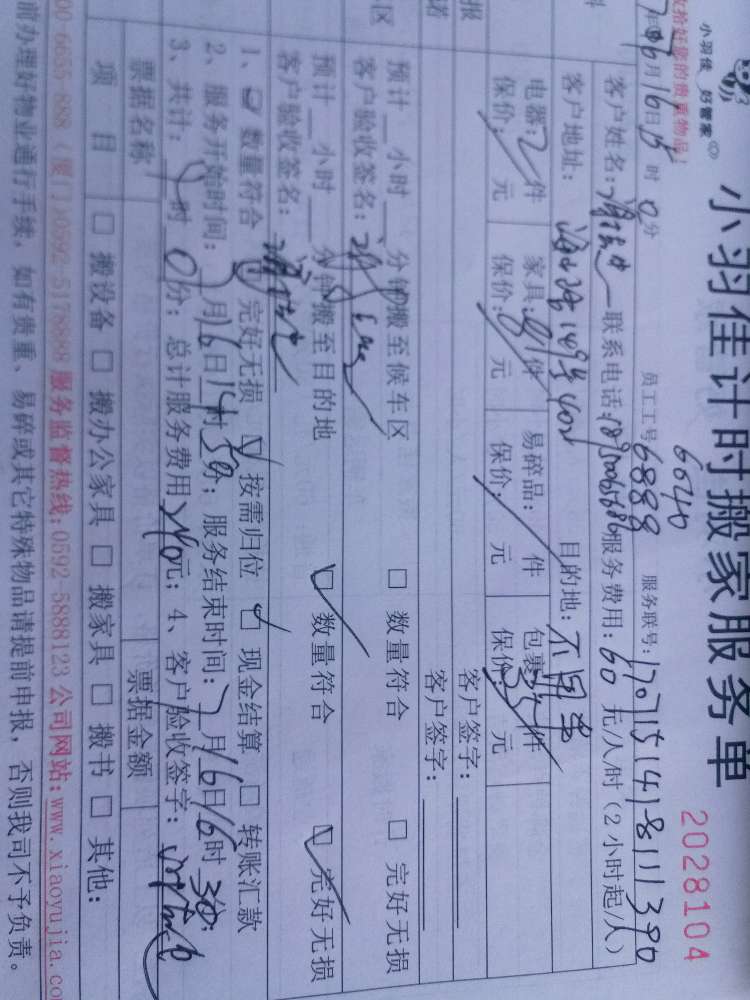 小羽佳 好管家
小羽佳计时搬家服务单
2028104
收拾好您的贵重物品！
6640
月16日15时0分 员工工号6888 服务联号：170715141811390
客户姓名： 联系电话： 服务费用：60元/人/时（2小时起/人）
客户地址： 149号401 目的地：
电器：2件 家具： 件 易碎品： 件 包裹： 件
保价： 元 保价： 元 保价： 元 保价： 元
客户签字：
客户签字：
预计 小时 分钟搬至候车区 □ 数量符合 □ 完好无损
客户验收签名：
预计 小时 分钟搬至目的地 □ 数量符合 □ 完好无损
客户验收签名：
1、□ 数量符合 □ 完好无损 □ 按需归位 □ 现金结算 □ 转账汇款
2、服务开始时间：7月16日14时30分；服务结束时间：7月16日16时30分；
3、共计： 时0分；总计服务费用240元；4、客户验收签字：
票据名称 票据金额
项 目 □ 搬设备 □ 搬办公家具 □ 搬家具 □ 搬书 □ 其他：
00-6655-888（厦门）0592-5178888 服务监督热线：0592-5888123 公司网站：www.xiaoyujia.co
前办理好物业通行手续，如有贵重、易碎或其它特殊物品请提前申报，否则我司不予负责。